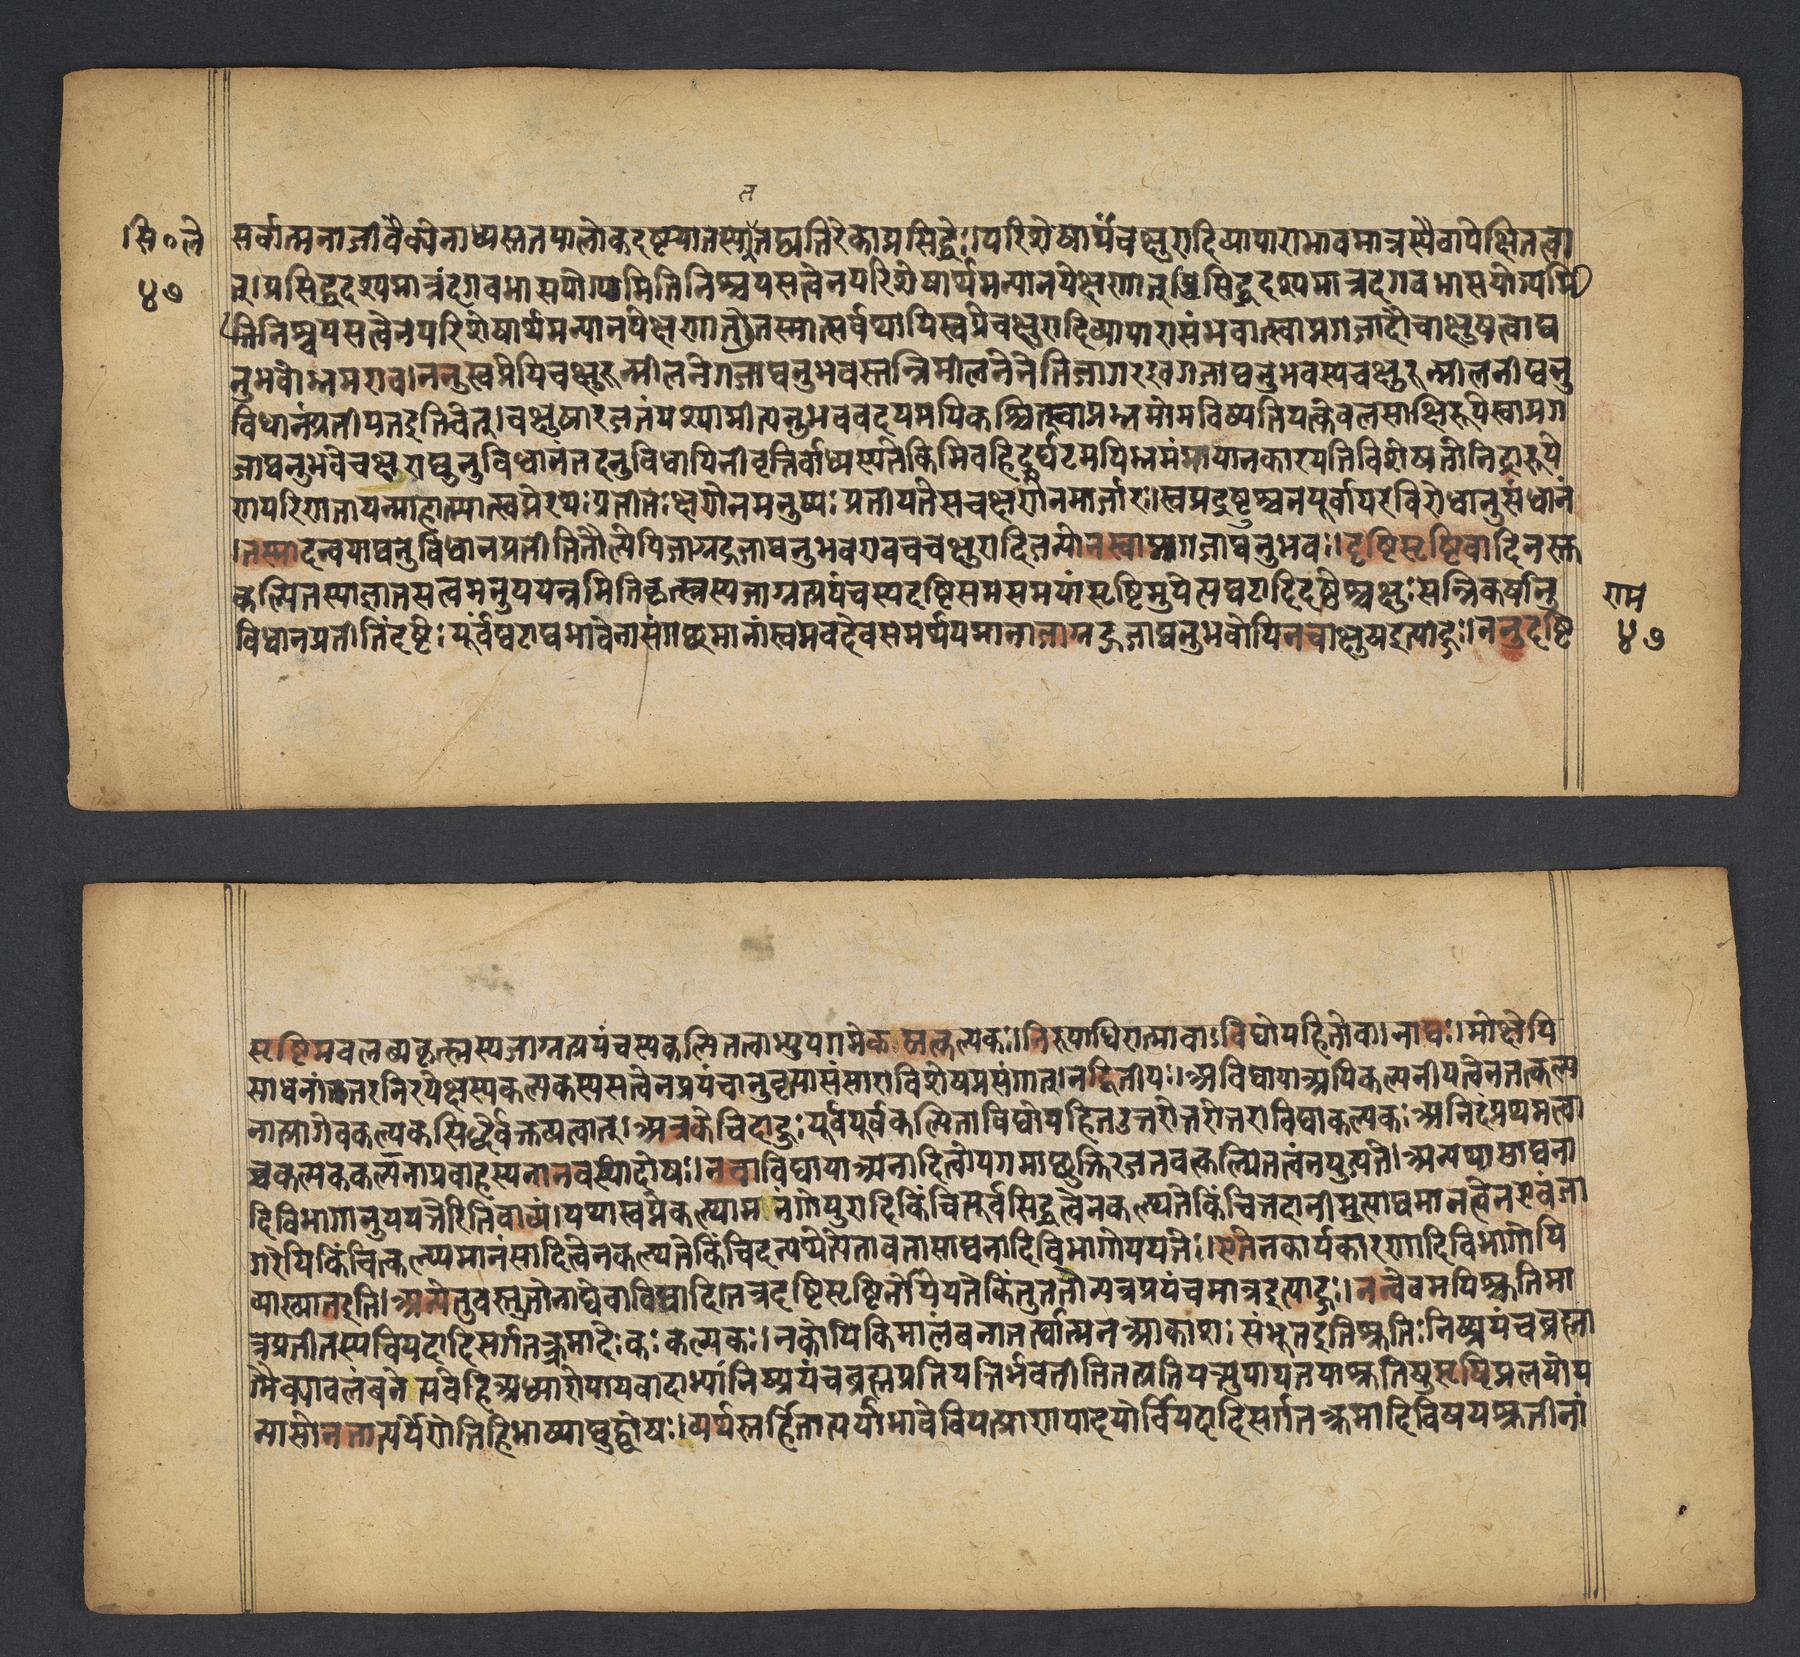 ।सि०ले
४७
सर्वात्मनाजीवैक्येनाध्यस्ततयालोकदृष्ट्यातस्यतद्व्यतिरेकाप्रसिद्धेः।परिशेषार्थंचक्षुरादिव्यापाराभावमात्रस्यैवापेक्षितत्वा
त्।प्रसिद्धदृश्यमात्रंदृगवभासयोग्यमितिनिश्चयसत्वेनपरिशेषार्थमन्यानपेक्षणात्।प्रसिद्धदृश्यमात्रदृगवभासयोग्यमि
तिनिश्चयसत्वेनपरिशेषार्थमन्यानपेक्षणात्।तस्मात्सर्वथापिस्वप्नेचक्षुरादिव्यापारासंभवात्स्वाप्नगजादौचाक्षुषत्वाद्य
नुभवोभ्रमएव।ननुस्वप्नेपिचक्षुरुन्मीलनेगजाद्यनुभवस्तन्निमीलनेनेतिजागरइवगजाद्यनुभवस्यचक्षुरुन्मीलनाद्यनु
विधानंप्रतीयतइतिचेत्।चक्षुषारजतंपश्यामीत्यनुभववदयमपिकश्चित्स्वाप्नभ्रमोभविष्यतियत्केवलसाक्षिरूपेस्वाप्नग
जाद्यनुभवेचक्षुराद्यनुविधानंतदनुविधायिनीवृत्तिर्वाध्यस्यतेकिमिवहिदुर्घटमपिभ्रमंमायानकारयतिविशेषतोनिद्रारूपे
णपरिणतायस्यामाहात्म्यात्स्वप्नेरथः।प्रतीतःक्षणेनमनुष्यःप्रतीयतेसचक्षणेनमार्जारः।स्वप्नद्रष्टुश्चनपूर्वापरविरोधानुसंधानं
।तस्मादन्वयाद्यनुविधानप्रतीतितौल्येपिजाग्रद्गजाद्यनुभवएवचचक्षुरादिजन्योनस्वाप्नगजाद्यनुभवः।दृष्टिसृष्टिवादिनस्तु
कल्पितस्याज्ञातसत्वमनुपपन्नमितिकृत्स्नस्यजाग्रत्प्रपंचस्यदृष्टिसमसमयांसृष्टिमुपेत्यघटादिदृष्टेश्चक्षुःसन्निकर्षानु
विधानप्रतीतिंदृष्टेःपूर्वंघटाद्यभावेनासंगच्छमानांस्वप्नवदेवसमर्थयमानाजाग्रद्गजाद्यनुभवोपिनचाक्षुषइत्याहुः।ननुदृष्टि
राम
४७
सृष्टिमवलंब्यकृत्स्नस्यजाग्रत्प्रपंचस्यकल्पितत्वाभ्युपगमेकस्तत्कल्पकः।निरुपाधिरात्मावाऽविद्योपहितोवा।नाद्यः।मोक्षेपि
साधनांतरनिरपेक्षस्यकल्पकस्यसत्वेनप्रपंचानुवृत्त्यासंसाराविशेषप्रसंगात्।नद्वितीयः।अविद्यायाअपिकल्पनीयत्वेनतत्कल्प
नात्प्रागेवकल्पकसिद्धेर्वक्तव्यत्वात्।अत्रकेचिदाहुःपूर्वपूर्वकल्पिताविद्योपहितउत्तरोत्तरोत्तराविद्याकल्पकःअनिदंप्रथमत्वा
च्चकल्पककल्पनाप्रवाहस्यनानवस्थादोषः।नचाविद्यायाअनादित्वोपगमाच्छुक्तिरजतवत्कल्पितत्वंनयुज्यते।अन्यथासाद्यना
दिविभागानुपपत्तेरितिवाच्यं।यथास्वप्नेकल्प्यामानंगोपुरादिकिंचित्पूर्वसिद्धत्वेनकल्प्यतेकिंचित्तदानीमुत्पाद्यमानत्वेनएवंजा
गरेपिकिंचित्कल्प्यमानंसादित्वेनकल्प्यतेकिंचिदन्यथेत्येतावतासाद्यनादिविभागोपपत्तेः।एतेनकार्यकारणादिविभागोपि
व्याख्यातइति।अन्येतुवस्तुतोनाद्येवाविद्यादि।तत्रदृष्टिसृष्टिर्नोपेयतेकिंतुततोन्यत्रप्रपंचमात्रइत्याहुः।नन्वेवमपिश्रुतिमा
त्रप्रतीतस्यवियदादिसर्गतत्क्रमादेःकःकल्पकः।नकोपिकिमालंबनातर्ह्यात्मनआकाशःसंभूतइतिश्रुतिःनिष्प्रपंचब्रह्मा
त्मैक्यावलंबनेत्यवेहिअध्यारोपापवादाभ्यांनिष्प्रपंचब्रह्मप्रतिपत्तिर्भवेतीतितत्प्रतिपत्त्युपायतयाश्रुतिषुसृष्टिप्रलयोप
न्यासोनतात्पर्येणेतिहिभाष्याद्युद्घोषः।व्यर्थस्तर्हितात्पर्याभावेवियत्प्राणपादयोर्वियदादिसर्गतत्क्रमादिविषयश्रुतीनां